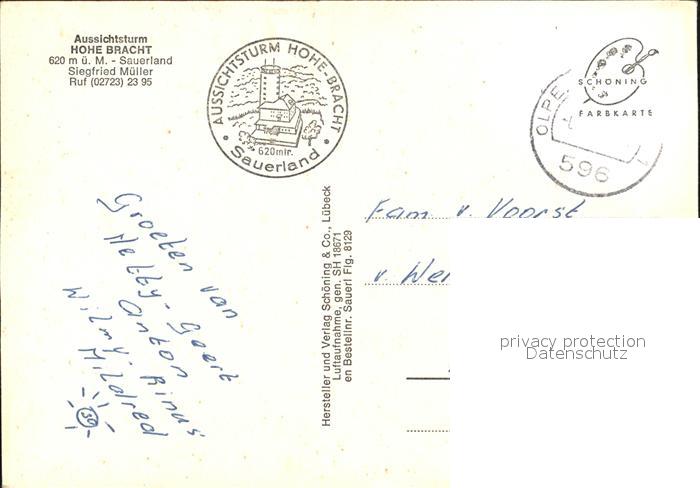 Aussichtsturm
HOHE BRACHT
620 m ü. M. - Sauerland
Siegfried Müller
Ruf (02723) 23 95
AUSSICHTSTURM HOHE-BRACHT
620mtr.
Sauerland
SCHÖNING
FARBKARTE
OLPE
596
Groeten van
Hetty - Geert
Anton Rinus
Wilmy. Mildred
Hersteller und Verlag Schöning & Co., Lübeck
Luftaufnahme, gen. SH 18671
en Bestellnr. Sauerl Flg. 8129
Fam v. Voorst
privacy protection
Datenschutz